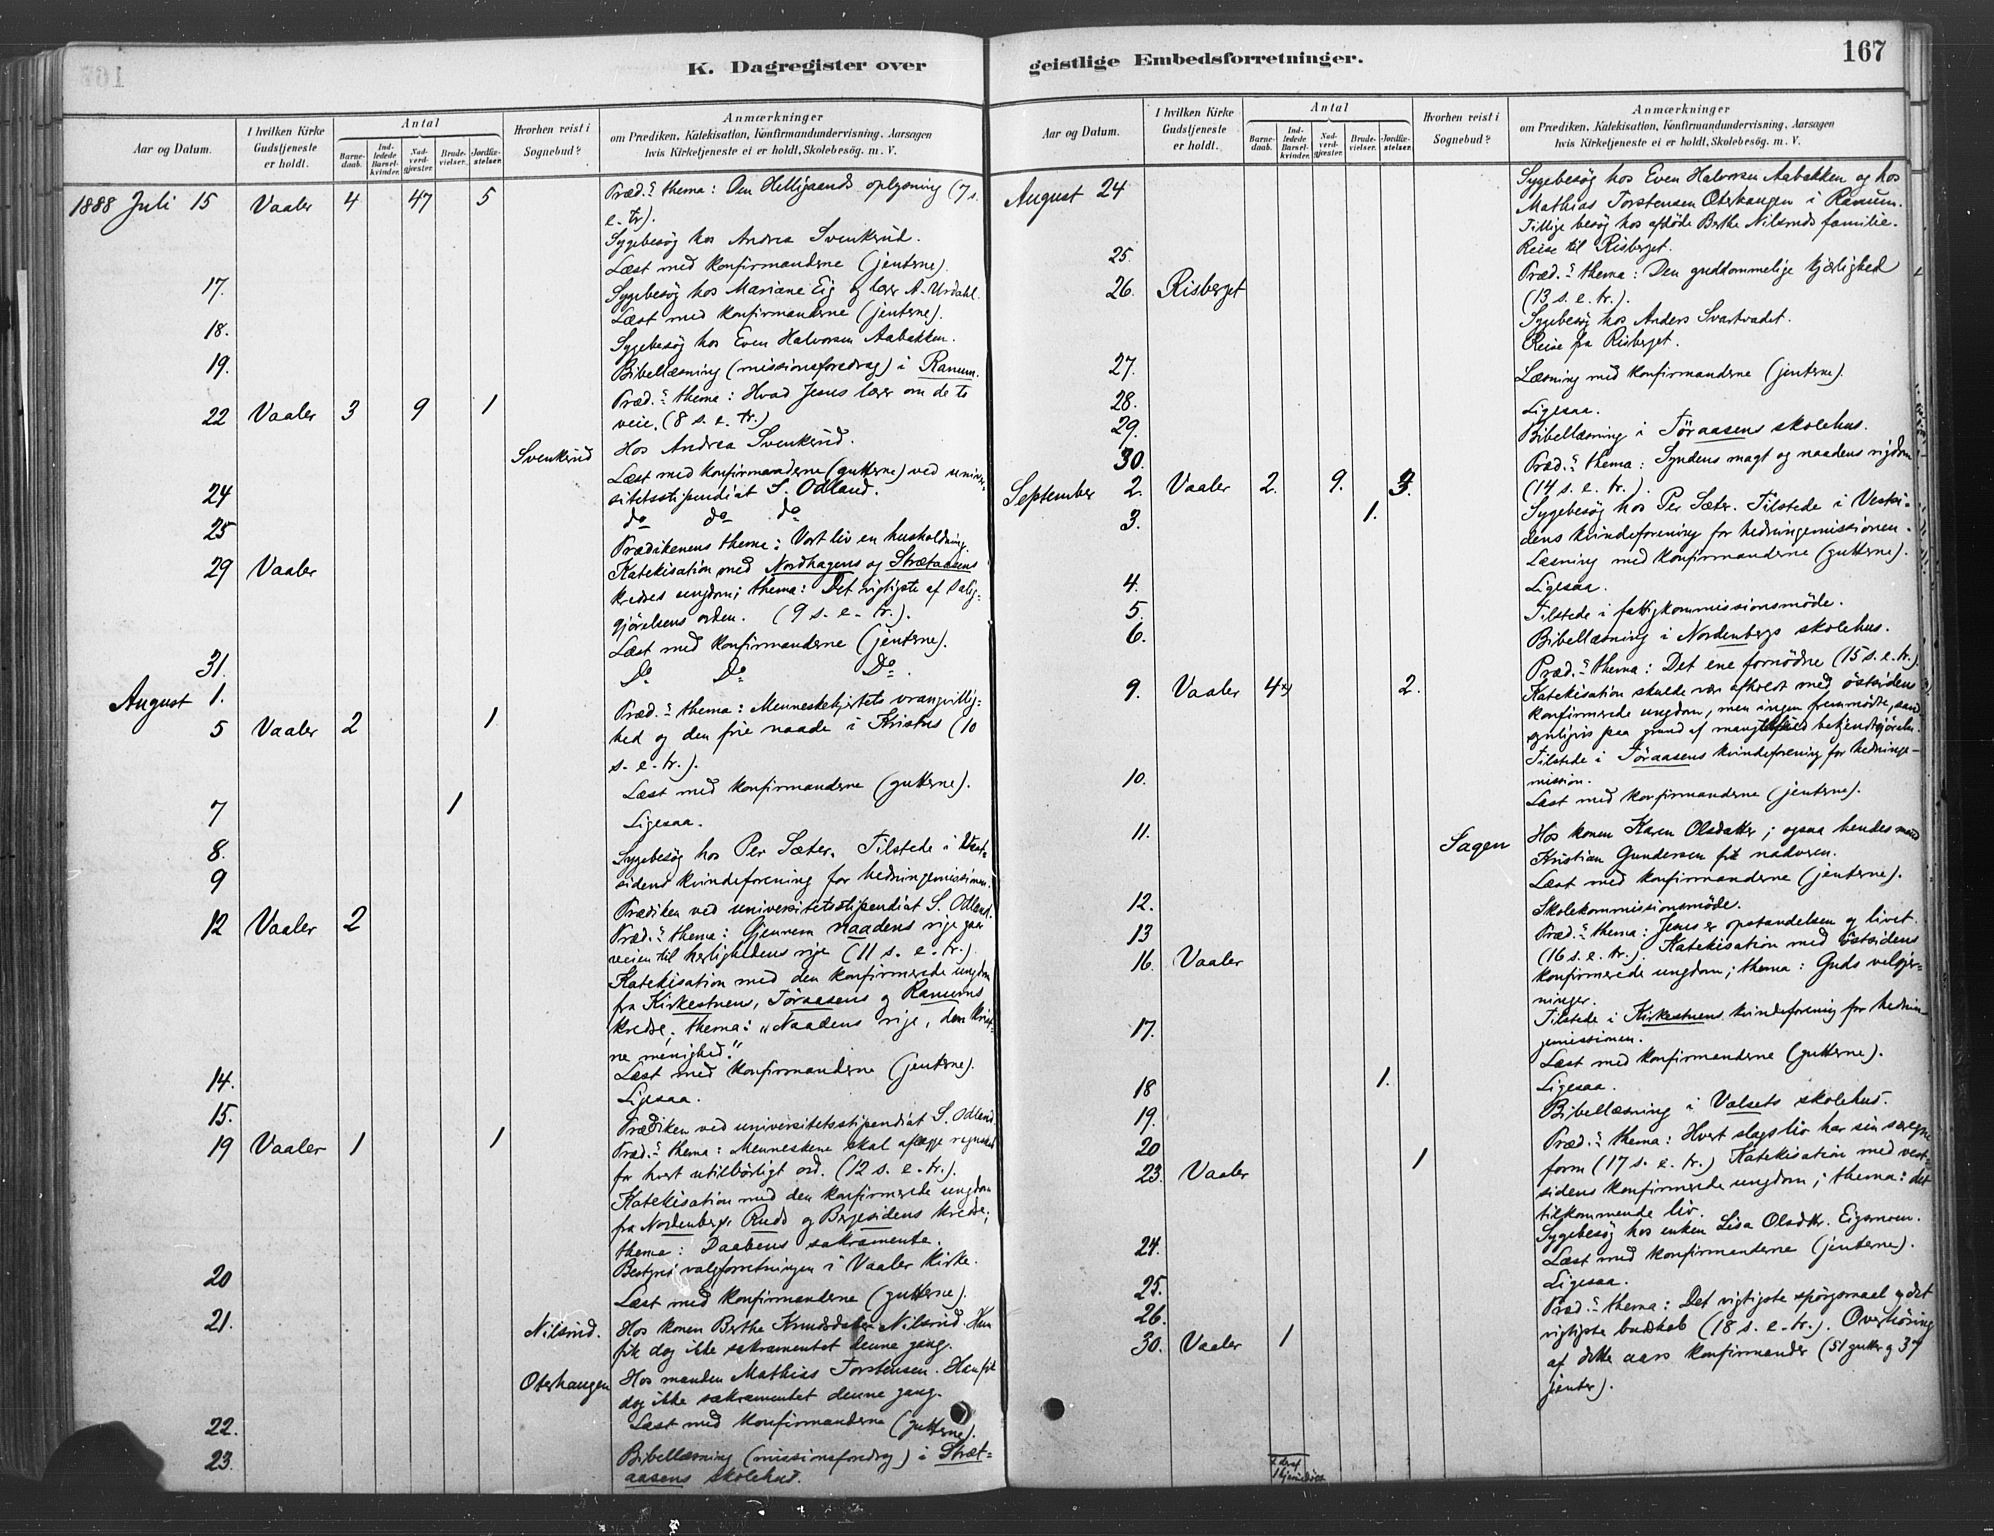 K. Dagregister over
Aar og Datum.
I hvilken Kirke Gudstjeneste er holdt.
Antal
Barnedaab.
Indledede Barselkvinder.
Nadverdgjæster.
Brudevielser.
Jordfæstelser.
Hvorhen reist i Sognebud?
Anmærkninger
om Prædiken, Katekisation, Konfirmandundervisning, Aarsagen
hvis Kirketjeneste ei er holdt, Skolebesøg. m. V.
1888 Juli 15 Vaaler 4 47 5 Præd.s thema: Den Helligaands oplysning (7 s.
e. tr).
Sygebesøg hos Andrea Svenkerud.
Læst med konfirmanderne (jenterne).
17. Sygebesøg hos Mariane Eig og lærer A. Urdahl.
Læst med konfirmanderne (jenterne).
18. Sygebesøg hos Even Halvorsen Aabakken.
19. Bibellæsning (missionsforedrag) i Ranum.
22 Vaaler 3 9 1 Præd.s thema: Hvad Jesus lærer om de to
veie. (8 s. e. tr.)
Svenkerud Hos Andrea Svenkerud.
24 Læst med konfirmanderne (gutterne) ved univer-
sitetsstipendiat S. Odland.
25 do do do
29 Vaaler Prædikenens thema: Vort liv en husholdning.
Katekisation med Nordhagens og Strætaasens
kredses ungdom; thema: Det vigtigste af salig-
gjørelsens orden. (9 s. e. tr.).
31. Læst med konfirmanderne (jenterne).
August 1. Do Do Do.
5 Vaaler 2 1 Præd.s thema: Menneskehjertets vrangvillig-
hed og den frie naade i Kristus (10
s. e. tr.).
7 1 Læst med konfirmanderne (gutterne).
8. Ligesaa.
9 Sygebesøg hos Per Sæter. Tilstede i Vest-
sidens kvindeforening for hedningemissionen.
12 Vaaler 2 Prædiken ved universitetsstipendiat S. Odland.
Præd.s thema: Gjennem naadens rige gaar
veien til herlighedens rige (11 s. e. tr.).
Katekisation med den konfirmerede ungdom
fra Kirkestuens, Töraasens og Ranums
kredse. thema: „Naadens rige, den krist-
ne menighed."
14. Læst med konfirmanderne (jenterne).
15. Ligesaa.
19 Vaaler 1 1 Prædiken ved universitetsstipendiat S. Odland.
Præd.s thema: Menneskene skal aflægge regnskab
for hvert utilbörligt ord. (12 s. e. tr.).
Katekisation med den konfirmerede ungdom
fra Nordenbergs, Ruds og Bergesidens kredse;
thema: Daabens sakramente.
20 Bestyret valgforretningen i Vaaler kirke.
21. Læst med konfirmanderne (gutterne).
Nilsrud. Hos konen Berthe Knudsdatter Nilsrud. Hun
fik dog ikke sakramentet denne gang.
Oterhaugen Hos manden Mathias Torstensen. Han fik
dog ikke sakramentet denne gang.
22. Læst med konfirmanderne (gutterne).
23. Bibellæsning (missionsforedrag) i Stræt-
aasens skolehus.
geistlige Embedsforretninger.
167
Aar og Datum.
I hvilken Kirke Gudstjeneste er holdt.
Antal
Barnedaab.
Indledede Barselkvinder.
Nadverdgjæster.
Brudevielser.
Jordfæstelser.
Hvorhen reist i Sognebud?
Anmærkninger
om Prædiken, Katekisation, Konfirmandundervisning, Aarsagen
hvis Kirketjeneste ei er holdt, Skolebesøg. m. V.
August 24 Sygebesøg hos Even Halvorsen Aabakken og hos
Mathias Torstensen Oterhaugen i Ranum.
Tillige besög hos afdöde Berthe Nilsruds familie.
25. Reise til Risberget.
26. Risberget Præd.s thema: Den guddommelige kjærlighed
(13 s. e. tr.).
Sygebesøg hos Anders Svartvadet.
27. Reise fra Risberget.
28. Læsning med konfirmanderne (jenterne).
29. Ligesaa.
30. Bibellæsning i Töraasens skolehus.
September 2. Vaaler 2. 9. 3. Præd.s thema: Syndens magt og naadens rigdom
(14 s. e. tr.).
3. 1. Sygebesøg hos Per Sæter. Tilstede i Vestsi-
dens kvindeforening for hedningemissionen.
4. Læsning med konfirmanderne (gutterne).
5. Ligesaa.
6. Tilstede i fattigkommissionsmöde.
Bibellæsning i Nordenbergs skolehus.
9. Vaaler 4 2. Præd.s thema: Det ene fornödne (15 s. e. tr.)
Katekisation skulde vær afholdt med östsidens
konfirmerede ungdom, men ingen fremmödte, sand-
synligvis paa grund af mangelfuld bekjendtgjörelse.
10. Tilstede i Töraasens kvindeforening for hedninge-
mission.
11. Læst med konfirmanderne (jenterne).
Sagen Hos konen Karen Olsdatter; ogsaa hendes mand
Kristian Gundersen fik nadveren.
12. Læst med konfirmanderne (jenterne).
13 Skolekommissionsmöde.
16. Vaaler Præd.s thema: Jesus er opstandelsen og livet
(16 s. e. tr.). Katekisation med östsidens
konfirmerede ungdom; thema: Guds velgjer-
ninger.
17. Tilstede i Kirkestuens kvindeforening for hednin-
gemissionen.
18 1. Læst med konfirmanderne (gutterne).
19. Ligesaa.
20 Bibellæsning i Valsets skolehus.
23. Vaaler 1 Præd.s thema: Hvert slags liv har sin særegne
form (17 s. e. tr.) Katekisation med vest-
sidens konfirmerede ungdom; thema: det
tilkommende liv.
24. Sygebesøg hos enken Lisa Olsdtr. Eigsmoen.
25. Læst med konfirmanderne (jenterne).
26. Ligesaa.
30. Vaaler 1 Præd.s thema: Det vigtigste spörgsmaal og det
vigtigste budskab (18 s. e. tr.). Overhöring
af dette aars konfirmander (51 gutter og 37
jenter).
1 hjemmedöbt